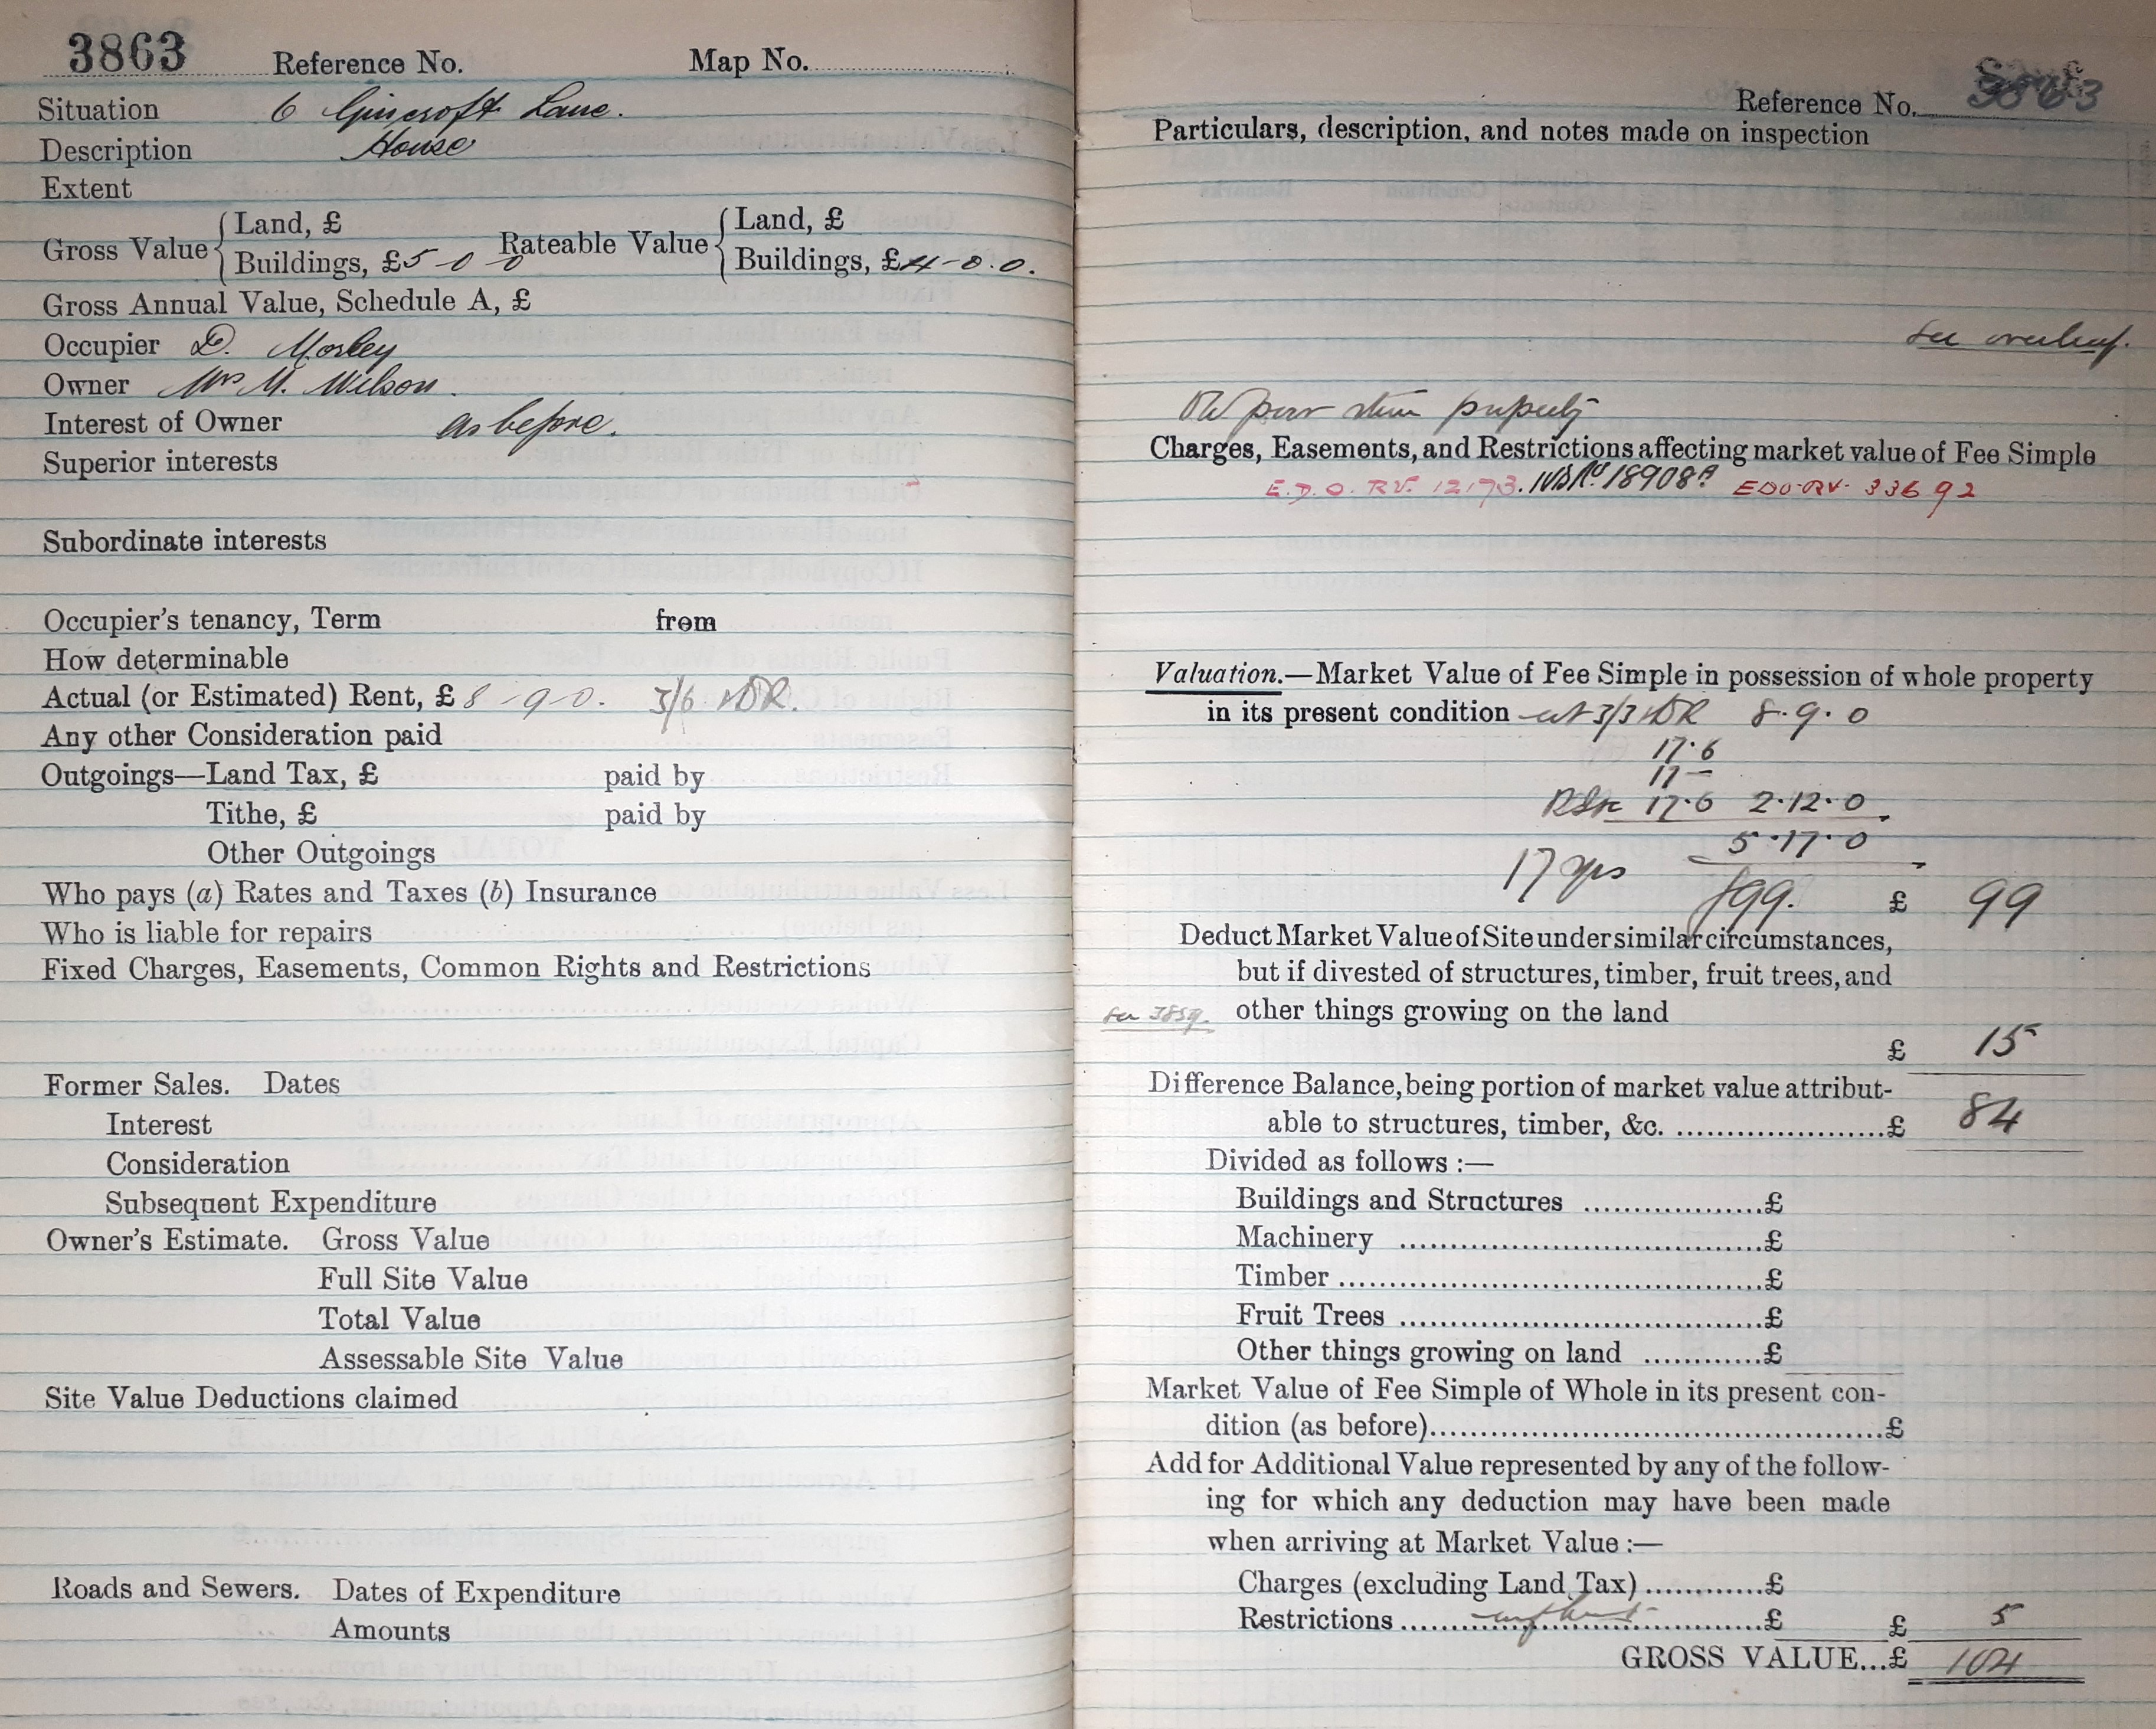 3863 Reference No. Map No.
Situation 6 Gincroft Lane.
Description House
Extent
Gross Value { Land, £
Buildings, £5-0-0
Rateable Value { Land, £
Buildings, £4-0.0.
Gross Annual Value, Schedule A, £
Occupier D. Morley
Owner Mrs M. Wilson.
Interest of Owner as before.
Superior interests
Subordinate interests
Occupier's tenancy, Term from
How determinable
Actual (or Estimated) Rent, £ 8-9-0. 3/6 DR.
Any other Consideration paid
Outgoings—Land Tax, £ paid by
Tithe, £ paid by
Other Outgoings
Who pays (a) Rates and Taxes (b) Insurance
Who is liable for repairs
Fixed Charges, Easements, Common Rights and Restrictions
Former Sales. Dates
Interest
Consideration
Subsequent Expenditure
Owner's Estimate. Gross Value
Full Site Value
Total Value
Assessable Site Value
Site Value Deductions claimed
Roads and Sewers. Dates of Expenditure
Amounts
Reference No. 3863
Particulars, description, and notes made on inspection
see overleaf.
Old poor stone property
Charges, Easements, and Restrictions affecting market value of Fee Simple
E.D.O. RV. 12173. No 18908 EDO. RV. 33692
Valuation.—Market Value of Fee Simple in possession of whole property
in its present condition at 3/3 DR 8.9.0
17.6
17-
17.6 2.12.0
5.17.0
17 yrs £99. £ 99
Deduct Market Value of Site under similar circumstances,
but if divested of structures, timber, fruit trees, and
see 3859. other things growing on the land
£ 15
Difference Balance, being portion of market value attribut-
able to structures, timber, &c. ......................£ 84
Divided as follows :—
Buildings and Structures ..................£
Machinery ....................................£
Timber ..........................................£
Fruit Trees ....................................£
Other things growing on land ............£
Market Value of Fee Simple of Whole in its present con-
dition (as before)..............................................£
Add for Additional Value represented by any of the follow-
ing for which any deduction may have been made
when arriving at Market Value :—
Charges (excluding Land Tax) ............£
Restrictions ....................................£ £ 5
GROSS VALUE...£ 104